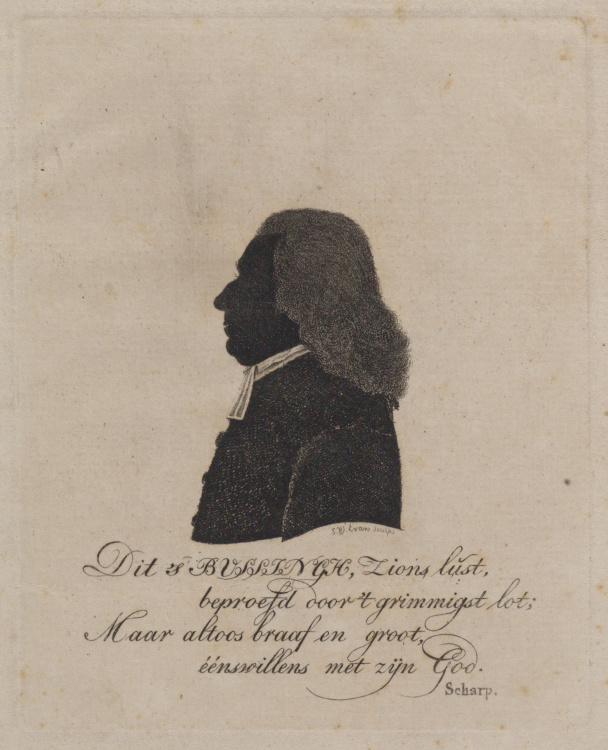 Evans sculps
Dit 's BUSSINGH, Zions lust,
beproefd door 't grimmigst lot;
Maar altoos braaf en groot,
éénswillens met zijn God.
Scharp.